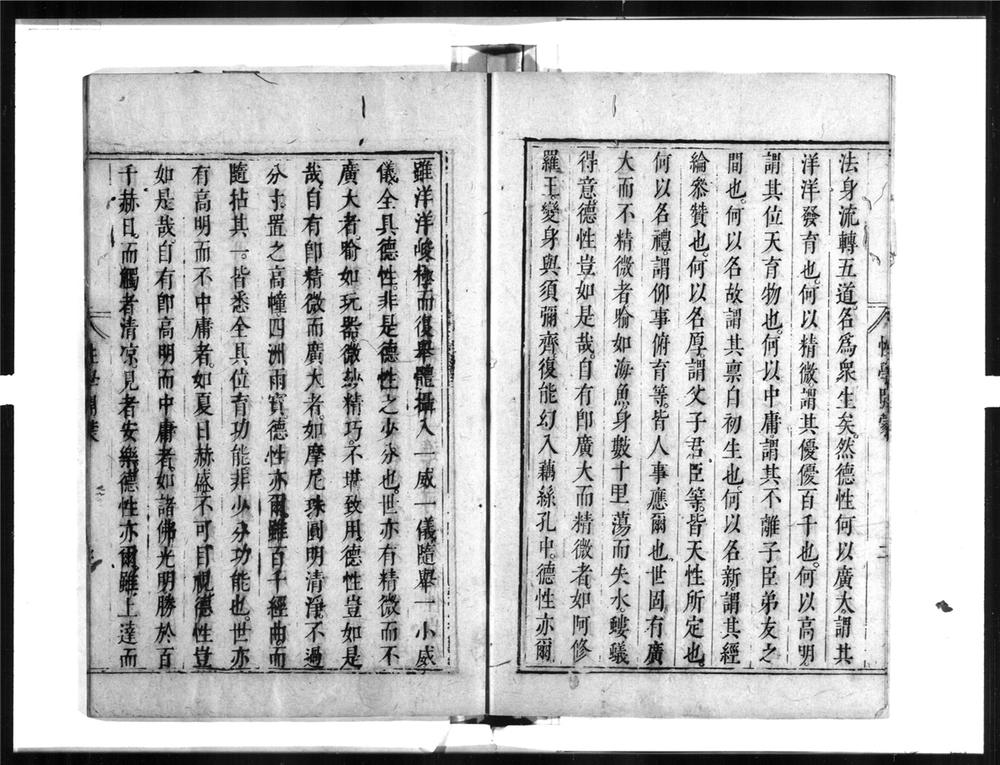 法身流轉五道名爲衆生矣然德性何以廣大謂其
洋洋發育也何以精微謂其優優百千也何以高明
謂其位天育物也何以中庸謂其不離子臣弟友之
間也何以名故謂其禀自初生也何以名新謂其經
綸叅贊也何以名厚謂父子君臣等皆天性所定也
何以名禮謂仰事俯育等皆人事應爾也世固有廣
大而不精微者喻如海魚身數十里蕩而失水螻蟻
得意德性豈如是哉自有卽廣大而精微者如阿修
羅王變身與須彌齊復能幻入藕絲孔中德性亦爾
性學開蒙
二
雖洋洋峻極而復舉體攝入一威一儀隨舉一小威
儀全具德性非是德性之少分也世亦有精微而不
廣大者喻如玩器微玅精巧不堪致用德性豈如是
哉自有卽精微而廣大者如摩尼珠圓明清淨不過
分寸置之高幢四洲雨寳德性亦爾雖百千經曲而
隨拈其一皆悉全具位育功能非少分功能也世亦
有高明而不中庸者如夏日赫盛不可目視德性豈
如是哉自有卽高明而中庸者如諸佛光明勝於百
千赫日而觸者清凉見者安樂德性亦爾雖上達而
性學開蒙